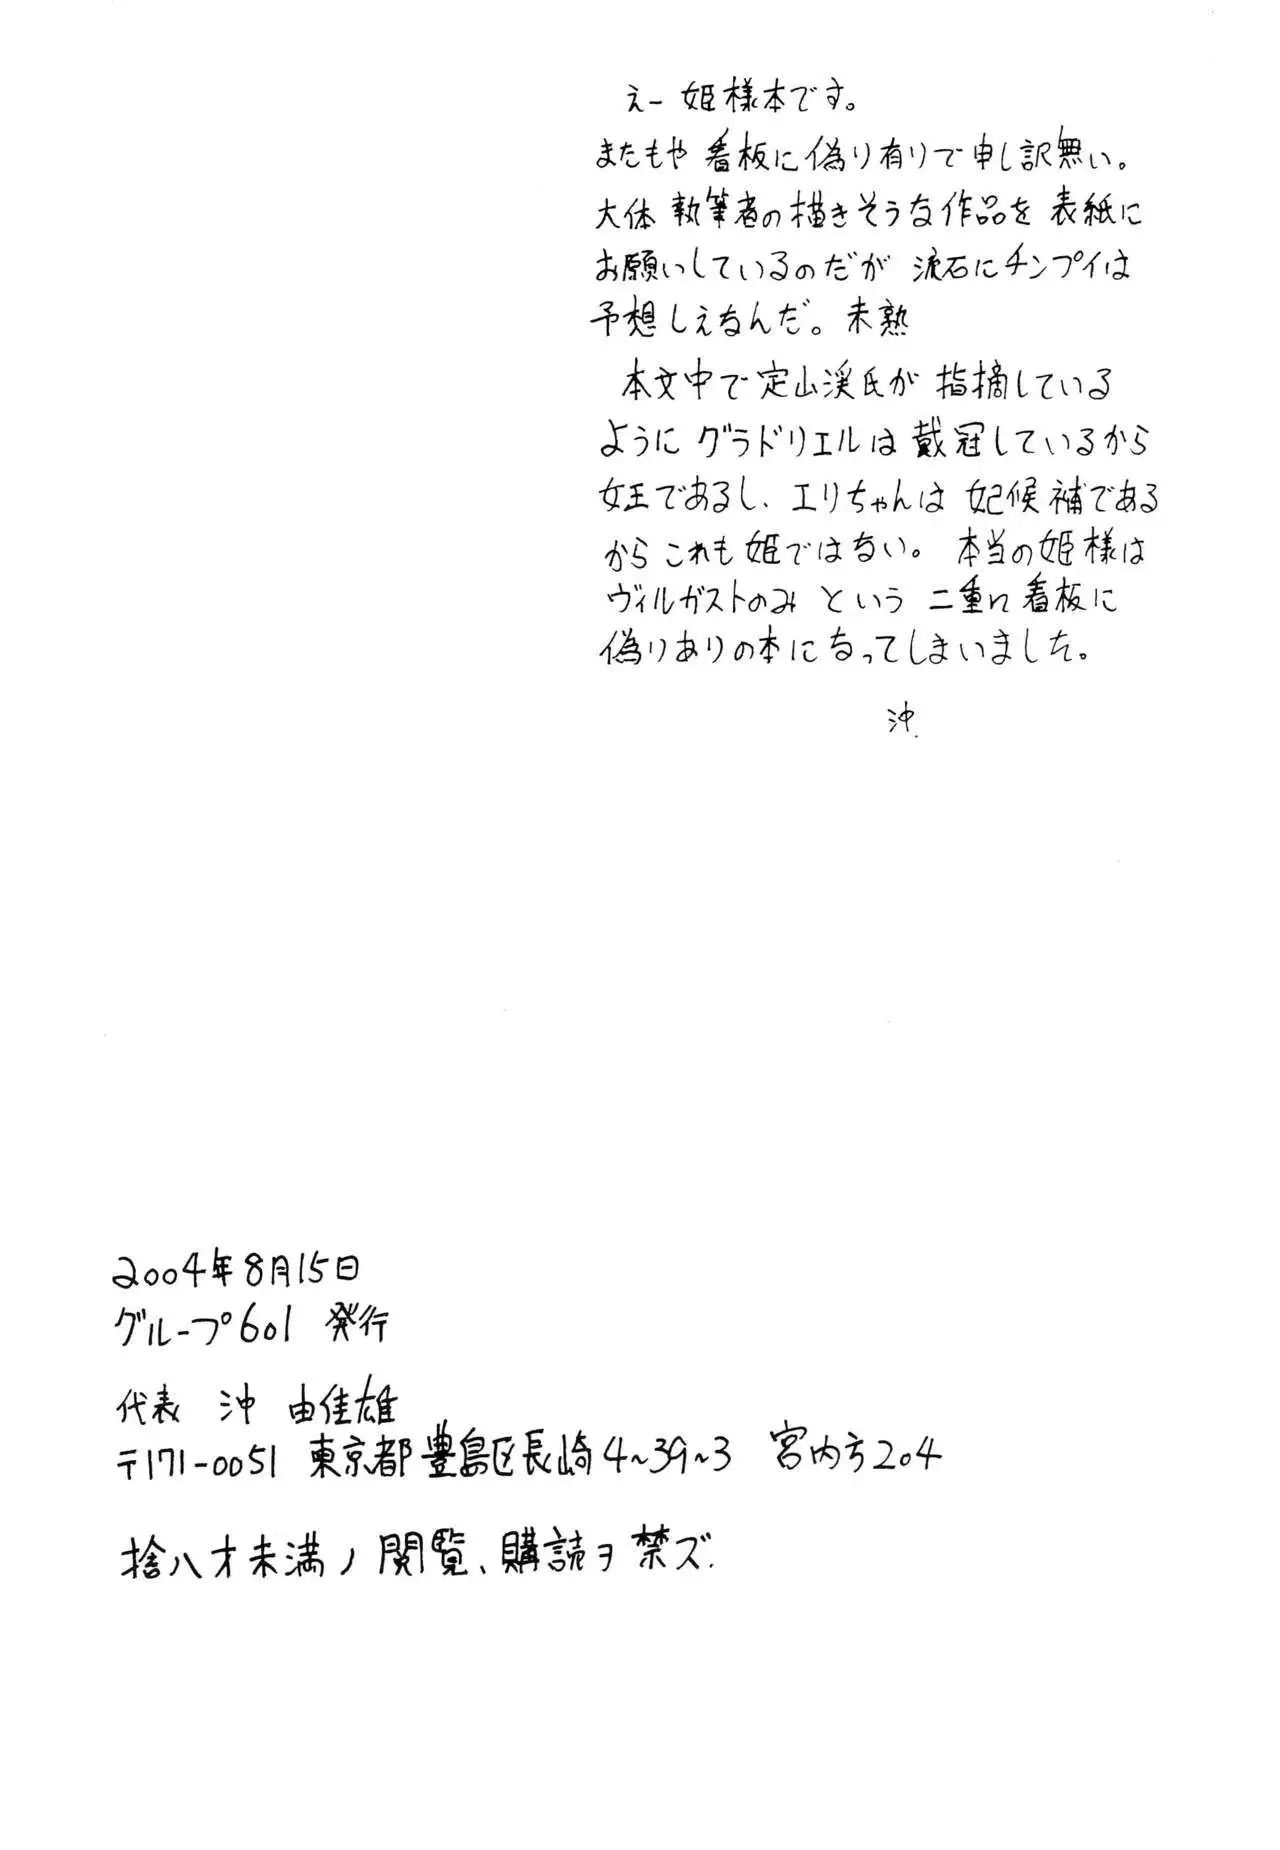 えー 姫様本です。
またもや 看板に偽り有りで申し訳無い。
大体 執筆者の描きそうな作品を 表紙に
お願いしているのだが 流石にチンプイは
予想しえなんだ。未熟
本文中で定山渓氏が 指摘している
ように グラドリエルは 戴冠しているから
女王であるし、エリちゃんは 妃候補である
から これも 姫ではない。 本当の姫様は
ヴィルガストのみ という 二重に看板に
偽りありの本になってしまいました。
沖
2004年8月15日
グループ601 発行
代表 沖 由佳雄
〒171-0051 東京都豊島区長崎4~39~3 宮内方204
捨八才未満ノ閲覧、購読ヲ禁ズ.